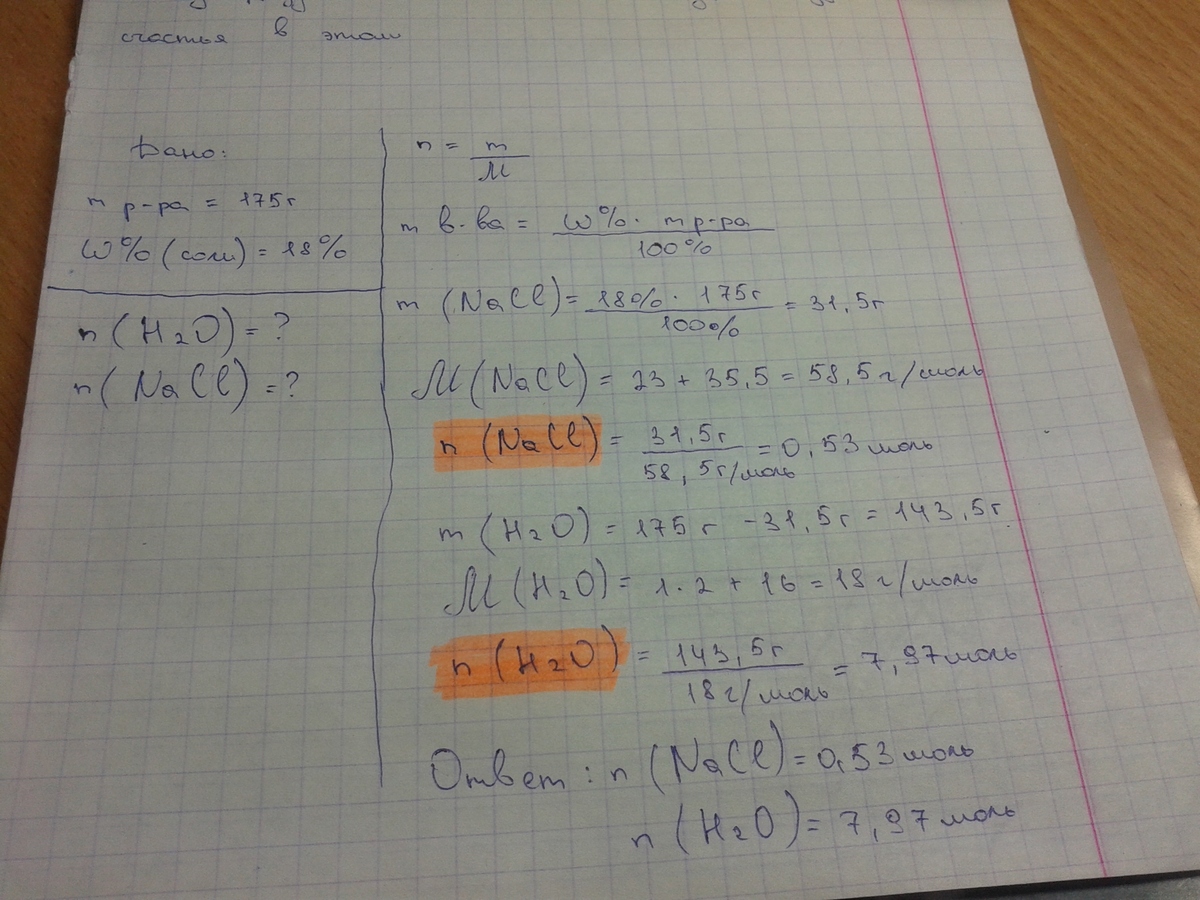 счастья в этом
Дано:
m р-ра = 175г
ω% (соли) = 18%
n (H₂O) = ?
n (NaCl) = ?
n = m/M
m в-ва = ω% · m р-ра / 100%
m (NaCl) = 18% · 175г / 100% = 31,5г
M (NaCl) = 23 + 35,5 = 58,5 г/моль
n (NaCl) = 31,5г / 58,5г/моль = 0,53 моль
m (H₂O) = 175 г - 31,5г = 143,5г
M (H₂O) = 1·2 + 16 = 18 г/моль
n (H₂O) = 143,5г / 18 г/моль = 7,97 моль
Ответ: n (NaCl) = 0,53 моль
n (H₂O) = 7,97 моль